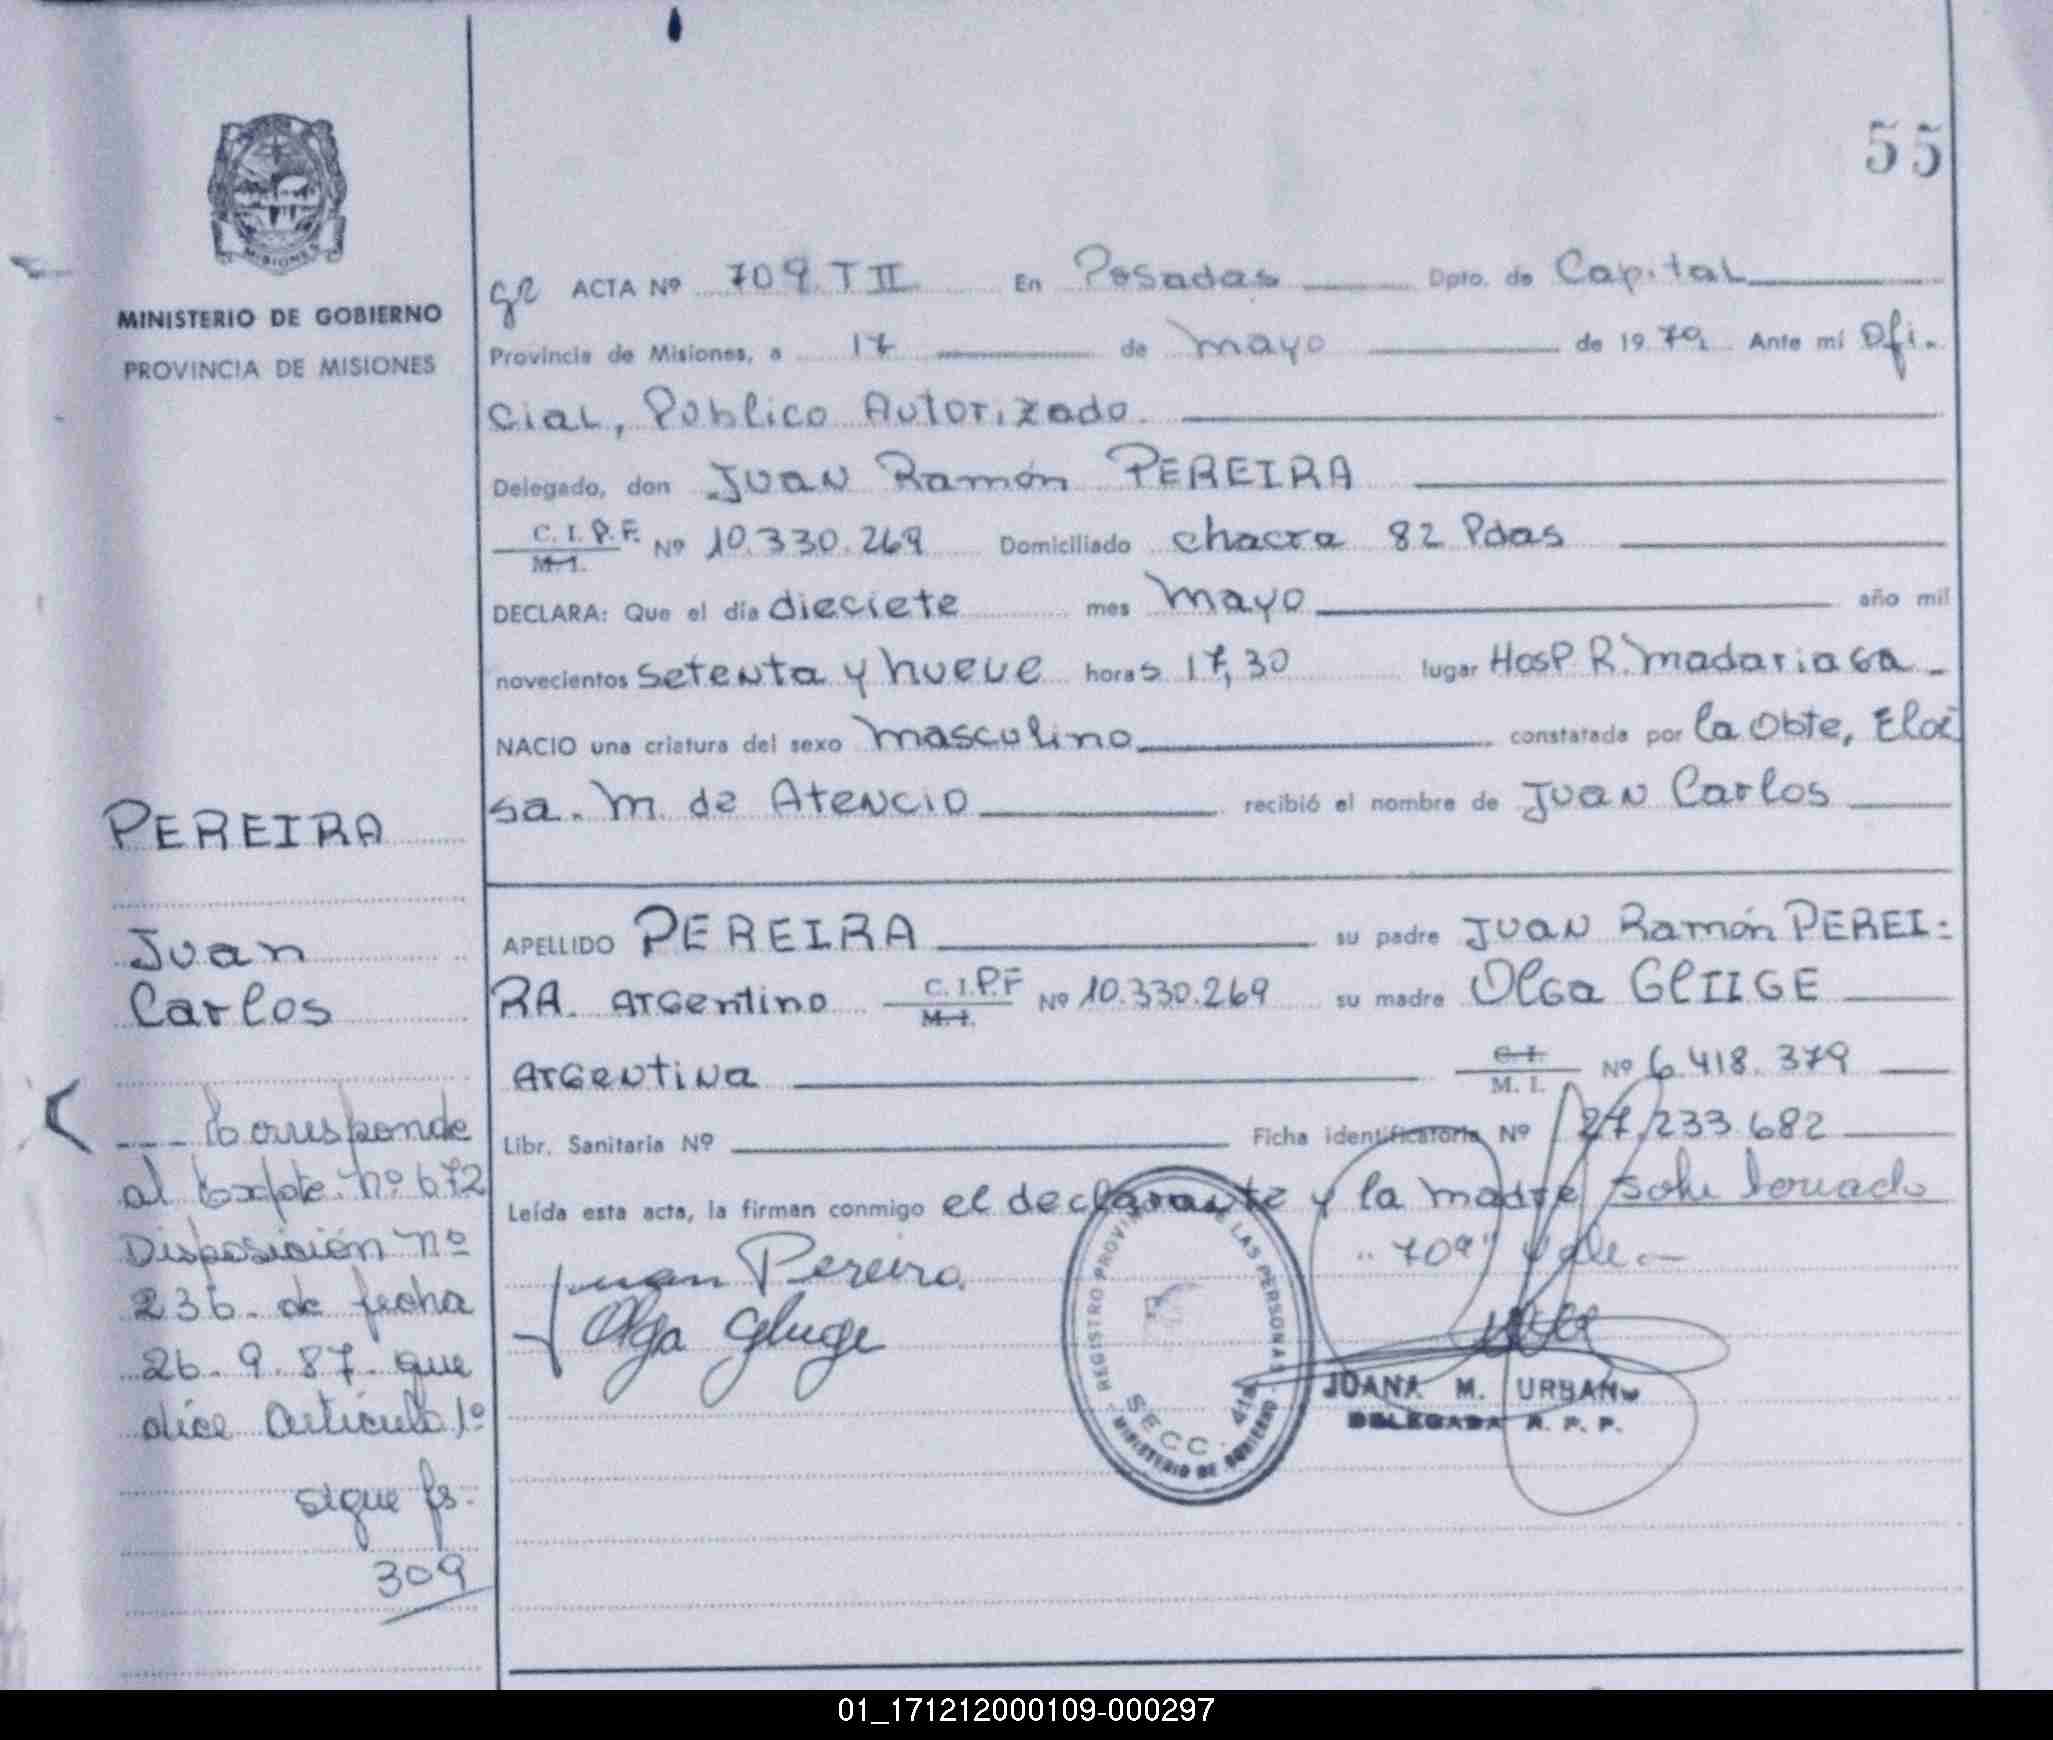 55
MISIONES
MINISTERIO DE GOBIERNO
PROVINCIA DE MISIONES
ACTA Nº 709 T II En Posadas Dpto. de Capital
Provincia de Misiones, a 17 de mayo de 1979 Ante mí Ofi-
cial, Público Autorizado.
Delegado, don Juan Ramón PEREIRA
C. I. P. F.
M. I.
Nº 10.330.269 Domiciliado chacra 82 Pdas
DECLARA: Que el día dieciete mes mayo año mil
novecientos setenta y nueve horas 17,30 lugar Hosp R. madariaga
NACIO una criatura del sexo masculino constatada por la Obte, Eloi
sa. M. de Atencio recibió el nombre de Juan Carlos
PEREIRA
Juan
Carlos
APELLIDO PEREIRA su padre Juan Ramón PEREI-
RA. Argentino C. I. P. F
M. I.
Nº 10.330.269 su madre Olga GLIIGE
Argentina C. I.
M. I.
Nº 6.418.379
Libr. Sanitaria Nº Ficha identificatoria Nº 27.233.682
Leída esta acta, la firman conmigo el declarante y la madre sobre borrado
"709" Vale.-
Juan Pereira.
Olga Gluge
REGISTRO PROVINCIAL DE LAS PERSONAS
SECC. 4ta
MINISTERIO DE GOBIERNO
JUANA M. URBAN
DELEGADA R. P. P.
Corresponde
al Expte. nº 672
Disposición nº
236. de fecha
26. 9. 87. que
dice Articulo 1º
sigue fs.
309
01_171212000109-000297